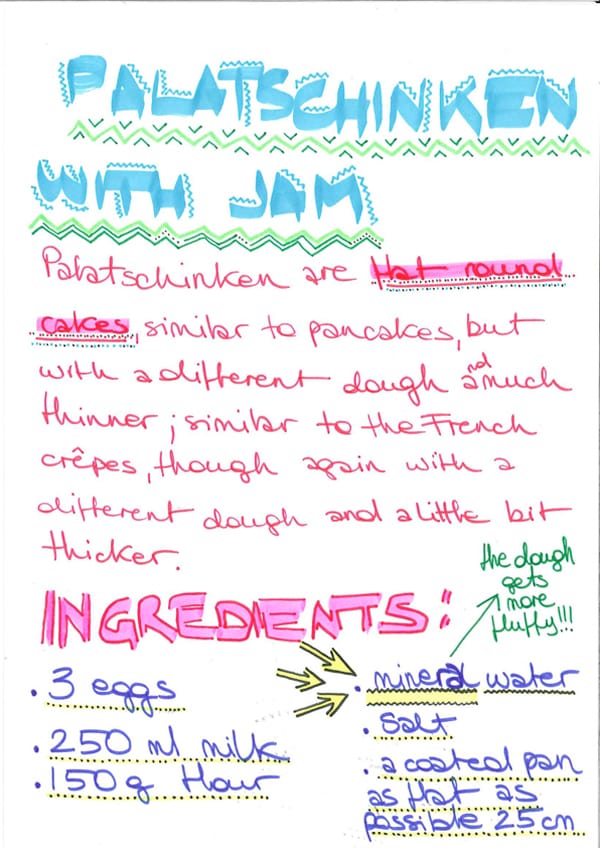 PALATSCHINKEN
WITH JAM
Palatschinken are flat round
cakes, similar to pancakes, but
with a different dough and much
thinner; similar to the French
crêpes, though again with a
different dough and a little bit
thicker.
INGREDIENTS:
. 3 eggs
. 250 ml milk
. 150 g flour
the dough
gets
more
fluffy!!!
. mineral water
. Salt
. a coated pan
as flat as
possible 25cm